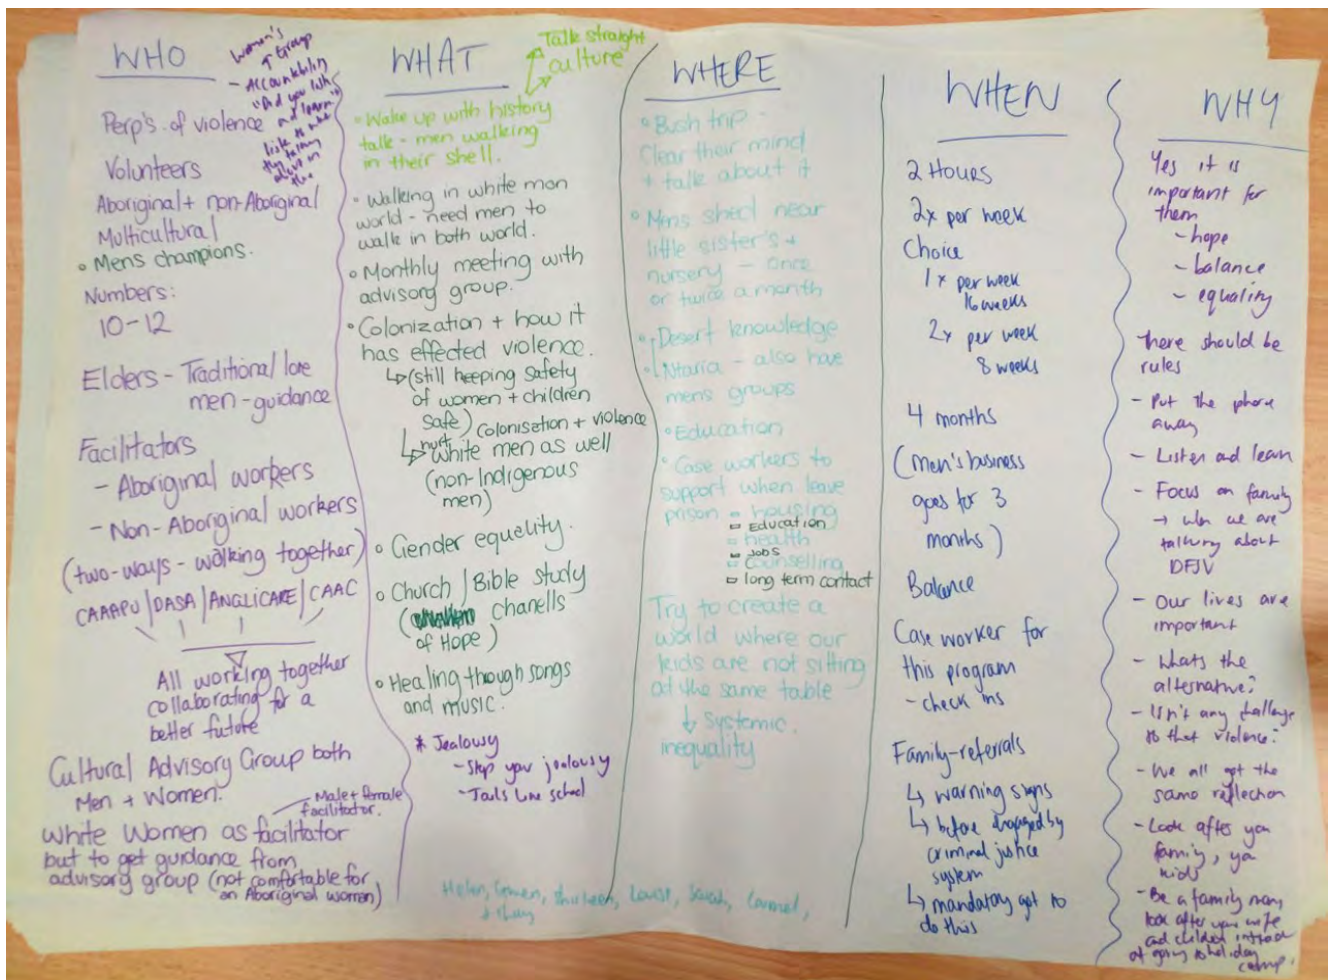 WHO
Women's
↑ Group
- Accountability
"Did you listen
and learn"
listen to what
they talking
about in
the
Perp's of violence
Volunteers
Aboriginal + non-Aboriginal
Multicultural
• Mens champions.
Numbers:
10-12
Elders - Traditional lore
men - guidance
Facilitators
- Aboriginal workers
- Non-Aboriginal workers
(two-ways - walking together)
CAAAPU / DASA / ANGLICARE / CAAC
All working together
collaborating for a
better future
Cultural Advisory Group both
Men + Women.
Male + female
facilitator.
White Women as facilitator
but to get guidance from
advisory group (not comfortable for
an Aboriginal woman)
WHAT
Talk straight
culture
• Wake up with history
talk - men walking
in their shell.
• Walking in white man
world - need men to
walk in both world.
• Monthly meeting with
advisory group.
• Colonization + how it
has effected violence.
↳ (still keeping safety
of women + children
safe)
Colonisation + violence
↳ hurt white men as well
(non-Indigenous
men)
• Gender equality.
• Church / Bible study
(chanells
of Hope)
• Healing through songs
and music.
* Jealousy
- Stop your jealousy
- Jails like school
WHERE
• Bush trip -
Clear their mind
+ talk about it
• Mens shed near
little sister's +
nursery - once
or twice a month
• Desert knowledge
• Ntaria - also have
mens groups
• Education
• Case workers to
support when leave
prison - housing
- Education
- health
- Jobs
- counselling
- long term contact
Try to create a
world where our
kids are not sitting
at the same table
↓ systemic
inequality
Helen, Shirleen, Louise, Sarah, Carmel,
WHEN
2 Hours
2x per week
Choice
1x per week
16 weeks
2x per week
8 weeks
4 months
(Men's business
goes for 3
months)
Balance
Case worker for
this program
- check ins
Family-referrals
↳ warning signs
↳ before engaged by
criminal justice
system
↳ mandatory got to
do this
WHY
Yes it is
important for
them
- hope
- balance
- equality
there should be
rules
- Put the phone
away
- Listen and learn
- Focus on family
→ when we are
talking about
DFJV
- Our lives are
important
- Whats the
alternative?
- Isn't any challenge
to that violence?
- We all got the
same reflection
- Look after your
family, ya
kids
- Be a family man,
look after your wife
and children instead
of going to holiday
camp.